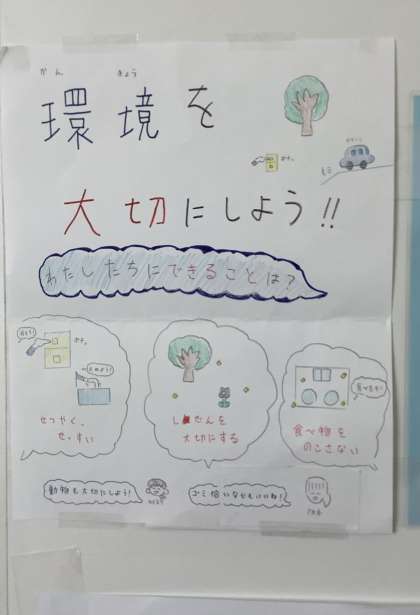 かん きょう
環境を
大切にしよう!!
わたしたちにできることは?
せつやく、
せっすい
しぜんを
大切にする
食べ物を
のこさない
動物も大切にしよう!
ゴミ拾いなどもいいね!